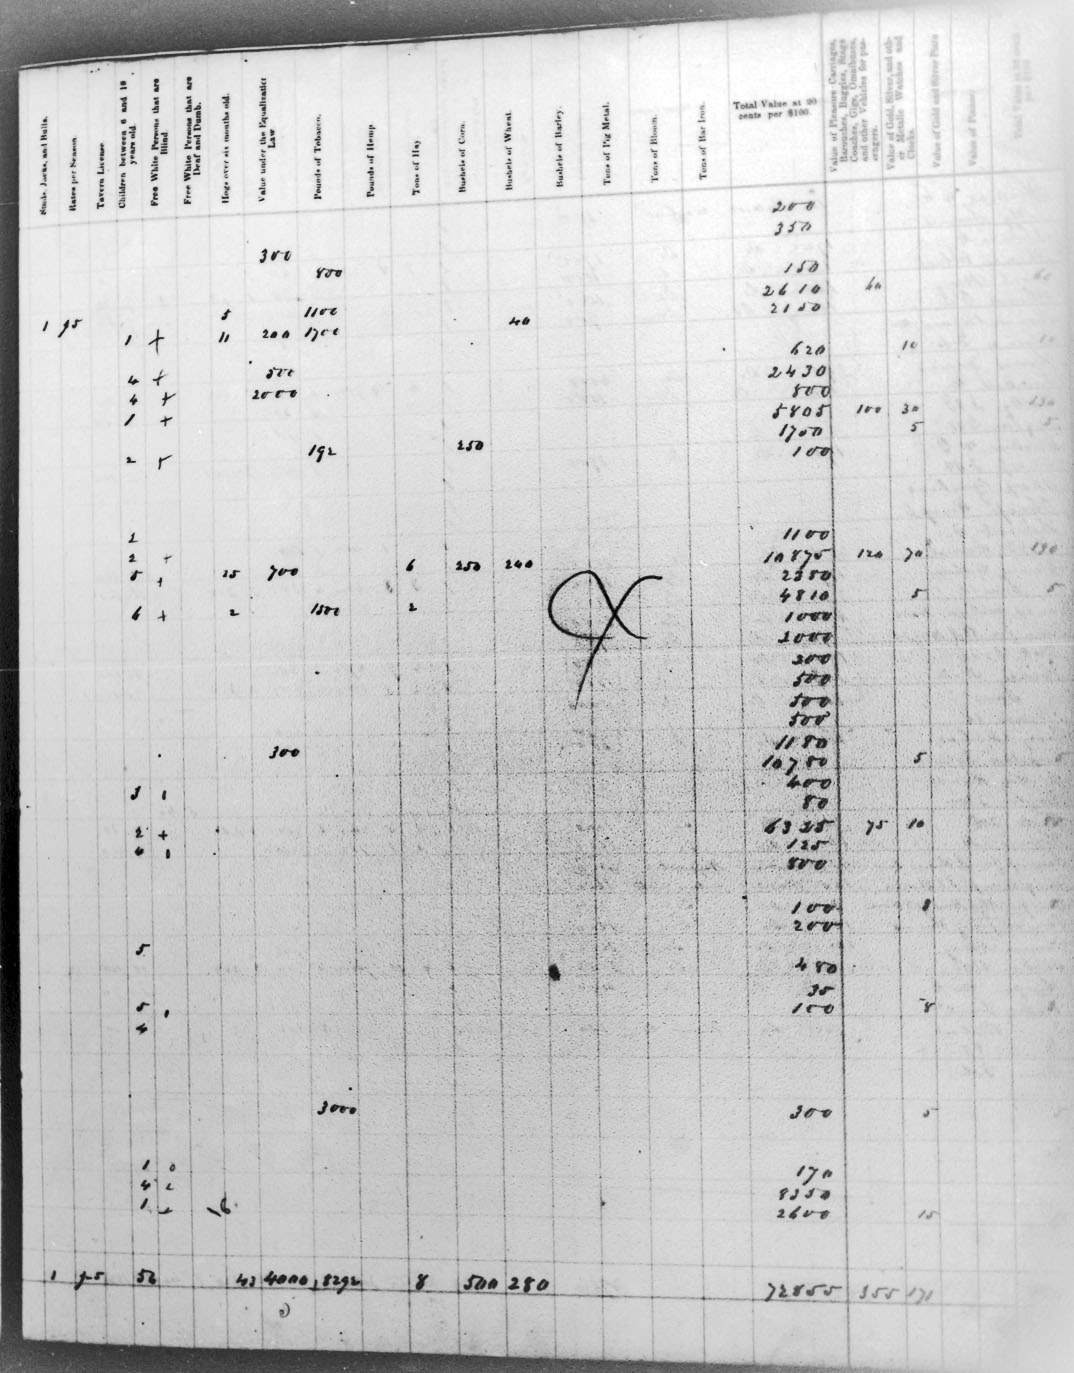 Studs, Jacks, and Bulls.
Rates per Season
Tavern License.
Children between 6 and 18 years old.
Free White Persons that are Blind.
Free White Persons that are Deaf and Dumb.
Hogs over six months old.
Value under the Equalization Law
Pounds of Tobacco.
Pounds of Hemp
Tons of Hay
Bushels of Corn.
Bushels of Wheat.
Bushels of Barley.
Tons of Pig Metal.
Tons of Bloom.
Tons of Bar Iron.
Total Value at 20 cents per $100.
Value of Pleasure Carriages, Barouches, Buggies, Stage Coaches, Gigs, Omnibuses, and other Vehicles for passengers.
Value of Gold, Silver, and other Metalic Watches and Clocks.
Value of Gold and Silver Plate
Value of Pianos.
200
350
300
800 150
2610 60
5 1100 2150
1 95 40
1 + 11 200 1700
620 10
4 + 500 2430
4 + 2000 800
1 + 5805 100 30
1700 5
2 192 250 100
1100
2 + 10875 120 70
5 + 25 700 6 250 240 2380
4810 5
6 + 2 1500 2 1000
300
500
500
500
1180
300 10780 5
400
3 80
2 + 75 10
4 125
800
100 8
200
5
480
35
5 100 8
4
3000 300 5
1 170
4 8350
1 6 2600 15
1 56 43 4000 8292 8 500 280 72855 355 171